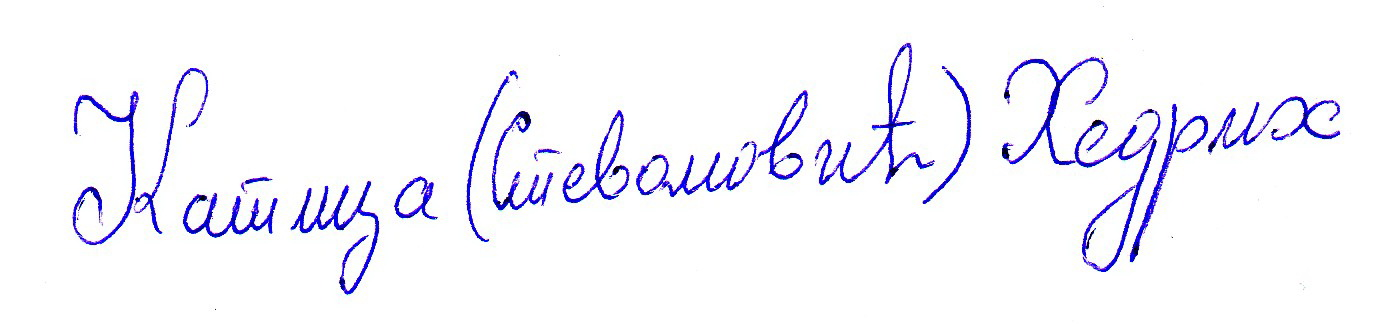 Катица (Стевановић) Хедрих